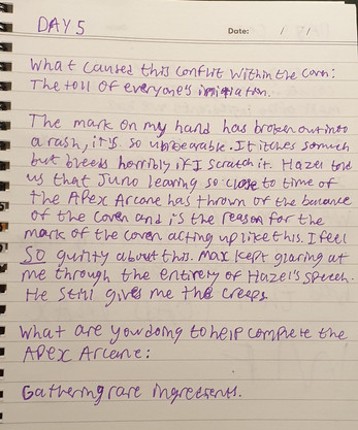 DAY 5
Date: / /
What caused this conflit within the Corn:
The toll of everyone's initiation.
The mark on my hand has broken out into
a rash, it's so unbearable. It itches so much
but bleeds horribly if I scratch it. Hazel told
us that Juno leaving so close to time of
the Apex Arcane has thrown of the balance
of the coven and is the reason for the
mark of the coven acting up like this. I feel
SO guilty about this. Max kept glaring at
me through the entirety of Hazel's speech.
He still gives me the creeps
What are you doing to help complete the
APEX Arcane:
Gathering rare ingredients.